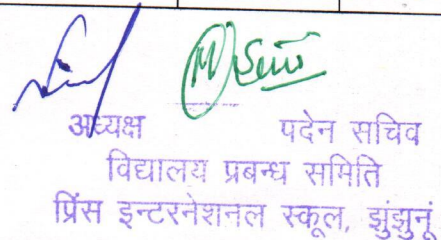 अध्यक्ष पदेन सचिव
विद्यालय प्रबन्ध समिति
प्रिंस इन्टरनेशनल स्कूल, झुंझुनूं